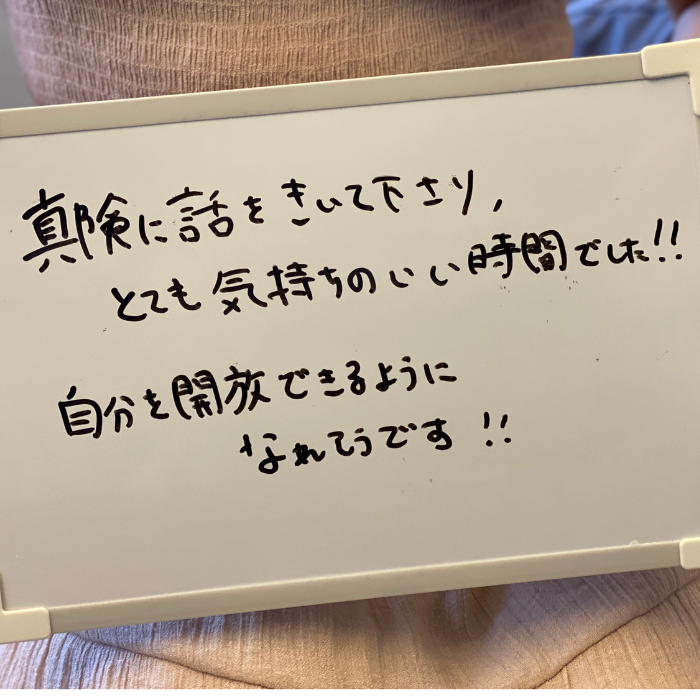 真険に話をきいて下さり,
とても気持ちのいい時間でした!!
自分を開放できるように
なれそうです!!